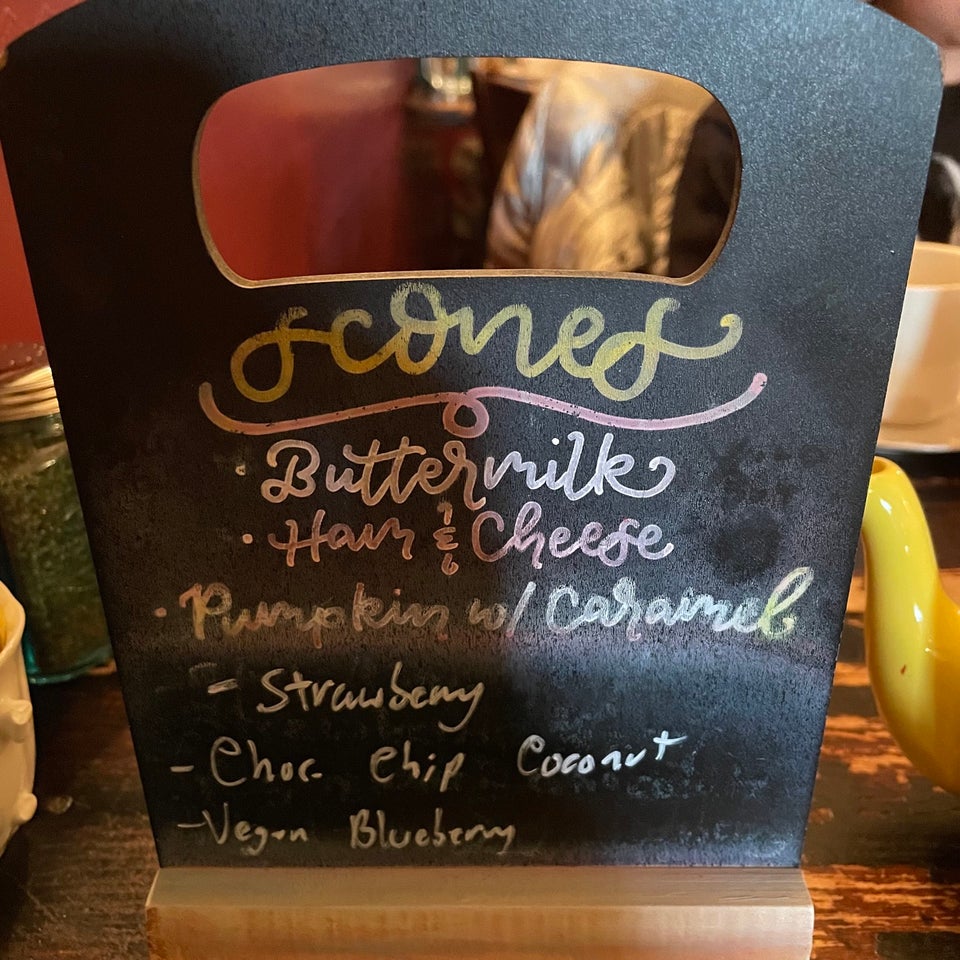 scones
· Buttermilk
· Ham & Cheese
· Pumpkin w/ Caramel
- Strawberry
- Choc. Chip Coconut
- Vegan Blueberry